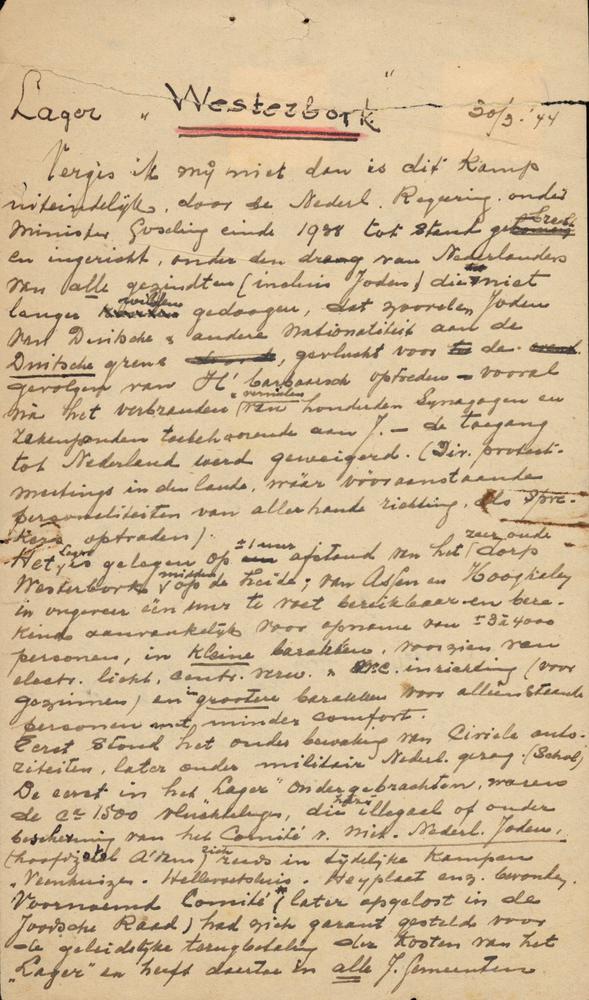 Lager „Westerbork" 30/3.'44
Vergis ik mij niet dan is dit Kamp
uiteindelijk, door de Nederl. Regering onder
Minister Goseling einde 1938 tot stand gebracht
en ingericht, onder den drang van Nederlanders
van alle gezindten (inclusis Joden) die niet
langer wilden gedoogen, dat zoovelen Joden
van Duitsche & andere Nationaliteit aan de
Duitsche grens, gevlucht voor de
gevolgen van H' barbaarsch optreden – vooral
na het verbranden & vernielen van honderden Synagogen en
zakenpanden toebehoorende aan J. – de toegang
tot Nederland werd geweigerd. (Div. protest-
meetings in den lande, waar vooraanstaande
personaliteiten van allerhande richting, als Spre-
kers optraden).
Het Lager is gelegen op ± 1 uur afstand van het zeer oude dorp
Westerbork, midden op de heide; van Assen en Hooghalen
in ongeveer één uur te voet bereikbaar en bere-
kend aanvankelijk voor opname van ± 3 à 4000
personen, in kleine barakken, voorzien van
electr. licht, centr. verw. & W.C. inrichting (voor
gezinnen) en in grootere barakken voor alleenstaande
personen met minder comfort.
Eerst stond het onder bewaking van Civiele auto-
riteiten, later onder militair Nederl. gezag. (Schol)
De eerst in het „Lager" ondergebrachten, waren
de ca 1500 vluchtelingen, die illegaal of onder
bescherming van het Comité v. niet-Nederl. Joden,
(hoofdzetel A'dam) zich reeds in tijdelijke Kampen
„Veenhuizen - Hellevoetsluis - Heyplaat enz. bevonden.
Voornoemd Comité (later opgelost in de
Joodsche Raad) had zich garant gesteld voor
de geleidelijke terugbetaling der Kosten van het
„Lager" en heeft daartoe in alle J. Gemeenten